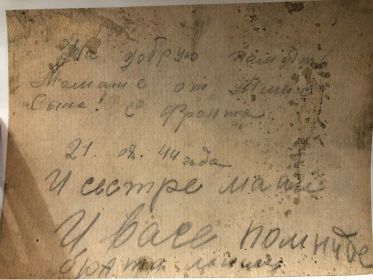 На добрую память
Мамаше от
Сына! с фронта
21. 02. 44 года
И сестре маши
И васе помните
брата